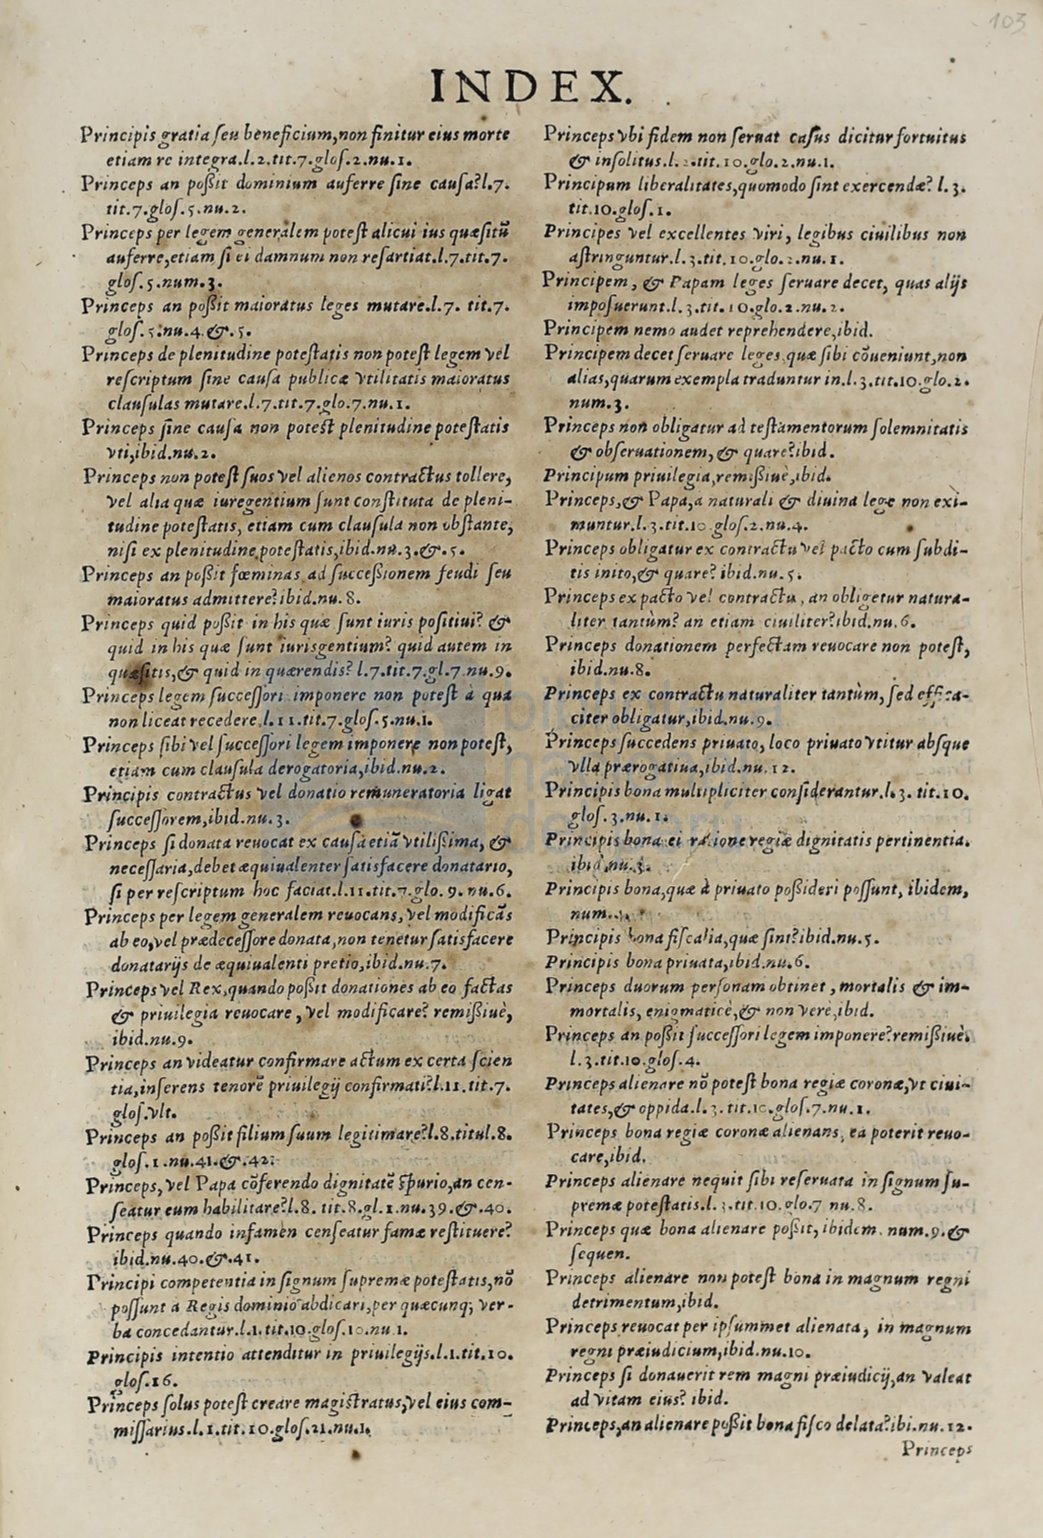 103
INDEX.
Principis gratia ſeu beneficium, non finitur eius morte
etiam re integra.l.2.tit.7.gloſ.2.nu.1.
Princeps an poßit dominium auferre ſine cauſa?l.7.
tit.7.gloſ.5.nu.2.
Princeps per legem generalem poteſt alicui ius quæſitũ
auferre,etiam ſi ei damnum non reſartiat.l.7.tit.7.
gloſ.5.num.3.
Princeps an poßit maioratus leges mutare.l.7. tit.7.
gloſ.5.nu.4.&.5.
Princeps de plenitudine poteſtatis non poteſt legem vel
reſcriptum ſine cauſa publicæ vtilitatis maioratus
clauſulas mutare.l.7.tit.7.glo.7.nu.1.
Princeps ſine cauſa non poteſt plenitudine poteſtatis
vti,ibid.nu.2.
Princeps non poteſt ſuos vel alienos contractus tollere,
vel alia quæ iuregentium ſunt conſtituta de pleni-
tudine poteſtatis, etiam cum clauſula non obſtante,
niſi ex plenitudine poteſtatis,ibid.nu.3.&.5.
Princeps an poßit fœminas ad ſucceßionem feudi ſeu
maioratus admittere?ibid.nu.8.
Princeps quid poßit in his quæ ſunt iuris poſitiui? &
quid in his quæ ſunt iurisgentium? quid autem in
quæſitis,& quid in quærendis? l.7.tit.7.gl.7.nu.9.
Princeps legem ſucceſſori imponere non poteſt à qua
non liceat recedere.l.11.tit.7.gloſ.5.nu.1.
Princeps ſibi vel ſucceſſori legem imponere non poteſt,
etiam cum clauſula derogatoria,ibid.nu.2.
Principis contractus vel donatio remuneratoria ligat
ſucceſſorem,ibid.nu.3.
Princeps ſi donata reuocat ex cauſa etiã vtilißima, &
neceſſaria,debet æquiualenter ſatisfacere donatario,
ſi per reſcriptum hoc faciat.l.11.tit.7.glo.9.nu.6.
Princeps per legem generalem reuocans, vel modificãs
ab eo,vel prædeceſſore donata,non tenetur ſatisfacere
donatarijs de æquiualenti pretio,ibid.nu.7.
Princeps vel Rex,quando poßit donationes ab eo factas
& priuilegia reuocare, vel modificare? remißiuè,
ibid.nu.9.
Princeps an videatur confirmare actum ex certa ſcien
tia,inſerens tenorẽ priuilegij confirmati?l.11.tit.7.
gloſ.vlt.
Princeps an poßit filium ſuum legitimare?l.8.titul.8.
gloſ.1.nu.41.&.42.
Princeps, vel Papa cõferendo dignitatẽ ſpurio,an cen-
ſeatur eum habilitare?l.8. tit.8.gl.1.nu.39.&.40.
Princeps quando infamen cenſeatur famæ reſtituere?
ibid.nu.40.&.41.
Principi competentia in ſignum ſupremæ poteſtatis,nõ
poſſunt a Regis dominio abdicari,per quæcunq; ver-
ba concedantur.l.1.tit.10.gloſ.10.nu.1.
Principis intentio attenditur in priuilegijs.l.1.tit.10.
gloſ.16.
Princeps ſolus poteſt creare magiſtratus,vel eius com-
miſſarius.l.1.tit.10.gloſ.21.nu.1.
Princeps vbi fidem non ſeruat caſus dicitur fortuitus
& inſolitus.l.2.tit.10.glo.2.nu.1.
Principum liberalitates,quomodo ſint exercendæ? l.3.
tit.10.gloſ.1.
Principes vel excellentes viri, legibus ciuilibus non
aſtringuntur.l.3.tit.10.glo.2.nu.1.
Principem, & Papam leges ſeruare decet, quas alijs
impoſuerunt.l.3.tit.10.glo.2.nu.2.
Principem nemo audet reprehendere,ibid.
Principem decet ſeruare leges quæ ſibi cõueniunt,non
alias,quarum exempla traduntur in.l.3.tit.10.glo.2.
num.3.
Princeps non obligatur ad teſtamentorum ſolemnitatis
& obſeruationem, & quare?ibid.
Principum priuilegia,remißiuè,ibid.
Princeps,& Papa,a naturali & diuina lege non exi-
muntur.l.3.tit.10.gloſ.2.nu.4.
Princeps obligatur ex contractu vel pacto cum ſubdi-
tis inito,& quare? ibid.nu.5.
Princeps ex pacto vel contractu, an obligetur natura-
liter tantùm? an etiam ciuiliter?ibid.nu.6.
Princeps donationem perfectam reuocare non poteſt,
ibid.nu.8.
Princeps ex contractu naturaliter tantùm, ſed effica-
citer obligatur,ibid.nu.9.
Princeps ſuccedens priuato, loco priuato vtitur abſque
vlla prærogatiua,ibid.nu.12.
Principis bona multipliciter conſiderantur.l.3. tit.10.
gloſ.3.nu.1.
Principis bona ei ratione regiæ dignitatis pertinentia.
ibid.nu.3.
Principis bona,quæ à priuato poßideri poſſunt, ibidem,
num.
Principis bona fiſcalia,quæ ſint?ibid.nu.5.
Principis bona priuata,ibid.nu.6.
Princeps duorum perſonam obtinet, mortalis & im-
mortalis, enigmaticè,& non verè,ibid.
Princeps an poßit ſucceſſori legem imponere?remißiuè.
l.3.tit.10.gloſ.4.
Princeps alienare nõ poteſt bona regiæ coronæ,vt ciui-
tates,& oppida.l.3.tit.10.gloſ.7.nu.1.
Princeps bona regiæ coronæ alienans, ea poterit reuo-
care,ibid.
Princeps alienare nequit ſibi reſeruata in ſignum ſu-
premæ poteſtatis.l.3.tit.10.glo.7 nu.8.
Princeps quæ bona alienare poßit, ibidem. num.9.&
ſequen.
Princeps alienare non poteſt bona in magnum regni
detrimentum,ibid.
Princeps reuocat per ipſummet alienata, in magnum
regni præiudicium,ibid.nu.10.
Princeps ſi donauerit rem magni præiudicij,an valeat
ad vitam eius? ibid.
Princeps,an alienare poßit bona fiſco delata?ibi.nu.12.
Princeps